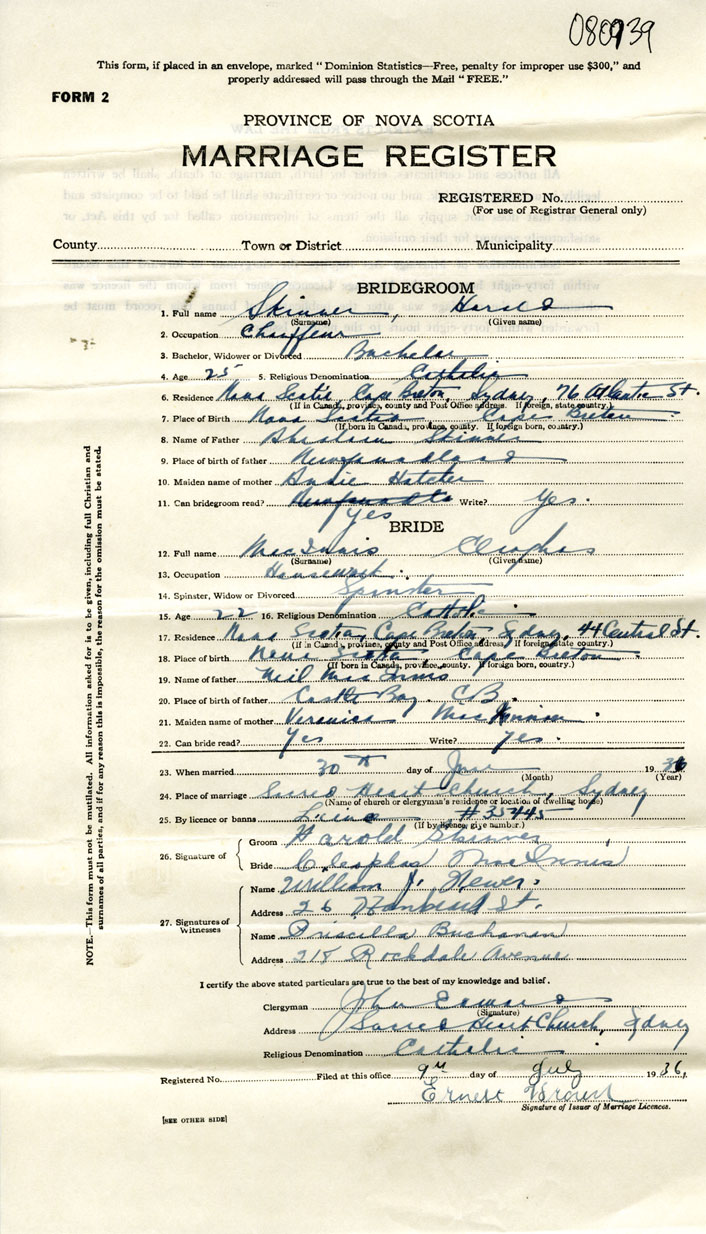 080939
This form, if placed in an envelope, marked "Dominion Statistics—Free, penalty for improper use $300," and
properly addressed will pass through the Mail "FREE."
FORM 2
PROVINCE OF NOVA SCOTIA
MARRIAGE REGISTER
REGISTERED No.
(For use of Registrar General only)
County Town or District Municipality
BRIDEGROOM
1. Full name Skinner, Harold
(Surname) (Given name)
2. Occupation Chauffeur
3. Bachelor, Widower or Divorced Bachelor
4. Age 25 5. Religious Denomination Catholic
6. Residence Nova Scotia, Cape Breton, Sydney, 76 Atlantic St.
(If in Canada, province, county and Post Office address. If foreign, state country.)
7. Place of Birth Nova Scotia Cape Breton
(If born in Canada, province, county. If foreign born, country.)
8. Name of Father Abraham Skinner
9. Place of birth of father Newfoundland
10. Maiden name of mother Hatcher
11. Can bridegroom read? Yes Write? Yes.
BRIDE
12. Full name MacInnis Cleophas
(Surname) (Given name)
13. Occupation Housework.
14. Spinster, Widow or Divorced Spinster
15. Age 22 16. Religious Denomination Catholic
17. Residence Nova Scotia, Cape Breton, Sydney, 44 Central St.
(If in Canada, province, county and Post Office address. If foreign state country.)
18. Place of birth Nova Scotia, Cape Breton
(If born in Canada, province, county. If foreign born, country.)
19. Name of father Neil MacInnis
20. Place of birth of father Castle Bay, C.B.
21. Maiden name of mother Veronica MacKinnon.
22. Can bride read? Yes Write? Yes.
23. When married 30th day of June 1936
(Month) (Year)
24. Place of marriage Sacred Heart Church, Sydney
(Name of church or clergyman's residence or location of dwelling house)
25. By licence or banns #35445
(If by licence, give number.)
26. Signature of { Groom Harold Skinner
Bride Cleophas MacInnis
27. Signatures of Witnesses { Name William J.
Address 26 St.
Name Priscilla Buchanan
Address 218 Rockdale Avenue
I certify the above stated particulars are true to the best of my knowledge and belief.
Clergyman John
(Signature)
Address Sacred Heart Church, Sydney
Religious Denomination Catholic
Registered No. Filed at this office 9th day of July 1936,
Ernest
Signature of Issuer of Marriage Licences.
[SEE OTHER SIDE]
NOTE.—This form must not be mutilated. All information asked for is to be given, including full Christian and
surnames of all parties, and if for any reason this is impossible, the reason for the omission must be stated.